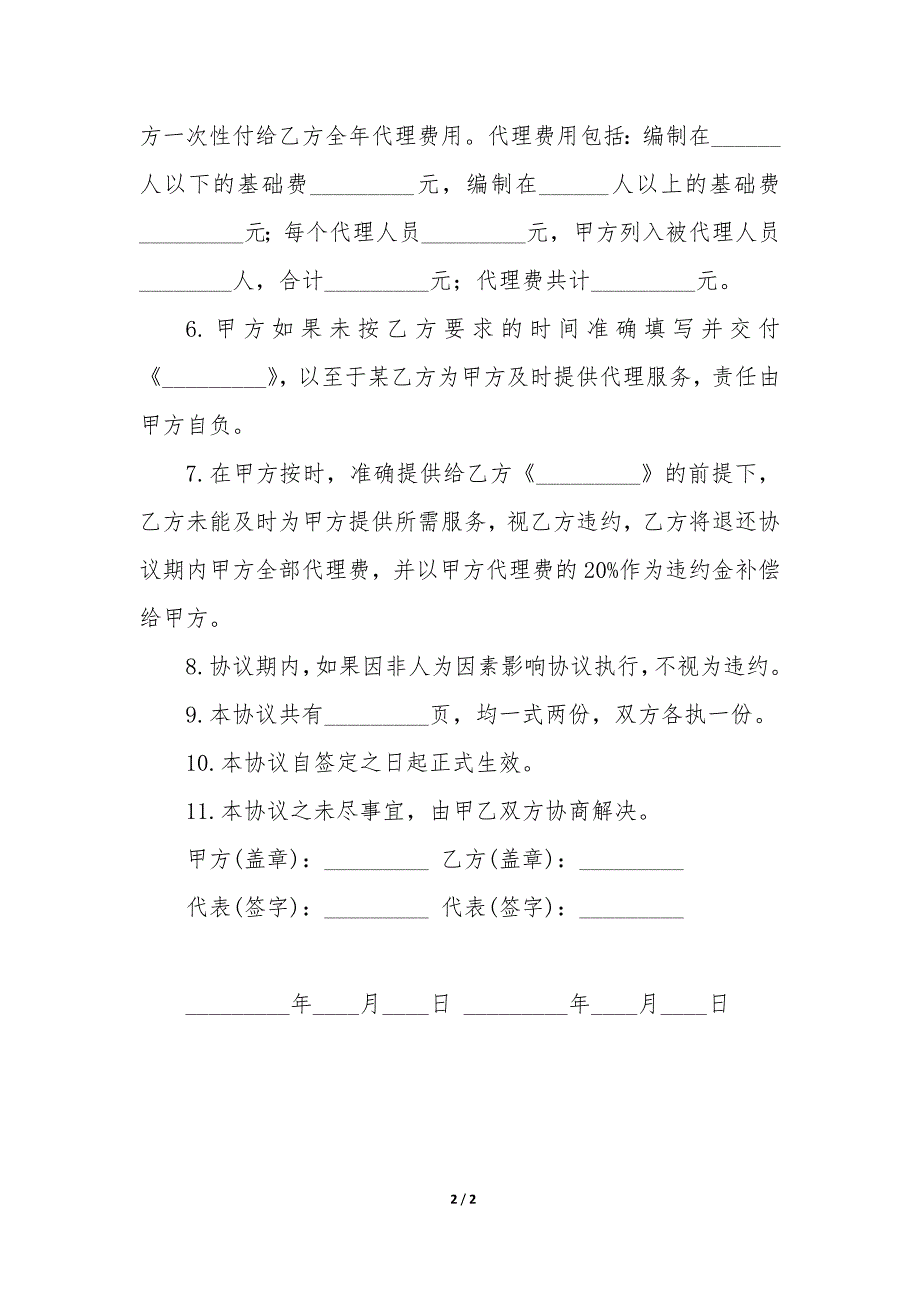 方一次性付给乙方全年代理费用。代理费用包括：编制在______
人以下的基础费_________元，编制在______人以上的基础费
_________元；每个代理人员_________元，甲方列入被代理人员
________人，合计_________元；代理费共计_________元。
6.甲方如果未按乙方要求的时间准确填写并交付
《_________》，以至于某乙方为甲方及时提供代理服务，责任由
甲方自负。
7.在甲方按时，准确提供给乙方《_________》的前提下，
乙方未能及时为甲方提供所需服务，视乙方违约，乙方将退还协
议期内甲方全部代理费，并以甲方代理费的20%作为违约金补偿
给甲方。
8.协议期内，如果因非人为因素影响协议执行，不视为违约。
9.本协议共有_________页，均一式两份，双方各执一份。
10.本协议自签定之日起正式生效。
11.本协议之未尽事宜，由甲乙双方协商解决。
甲方(盖章)：_________ 乙方(盖章)：_________
代表(签字)：_________ 代表(签字)：_________
_________年____月____日 _________年____月____日
2 / 2